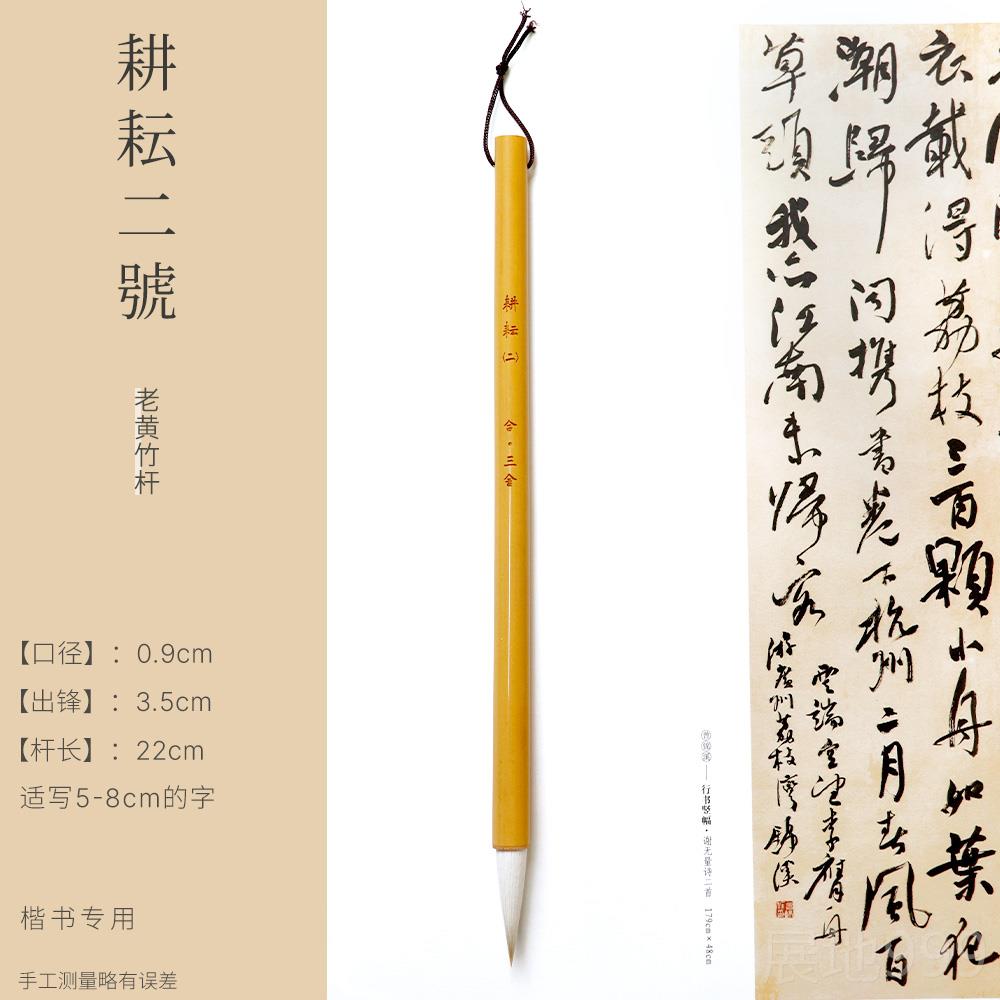 耕耘二號
老黄竹杆
【口径】：0.9cm
【出锋】：3.5cm
【杆长】：22cm
适写5-8cm的字
楷书专用
手工测量略有误差
耕耘(二)
合·三金
衣戴得荔枝三百顆小舟如葉犯
潮歸问携書卷下杭州二月春风百
草頭我亦江南未歸客
行书竖幅·谢无量诗二首 179cm×48cm